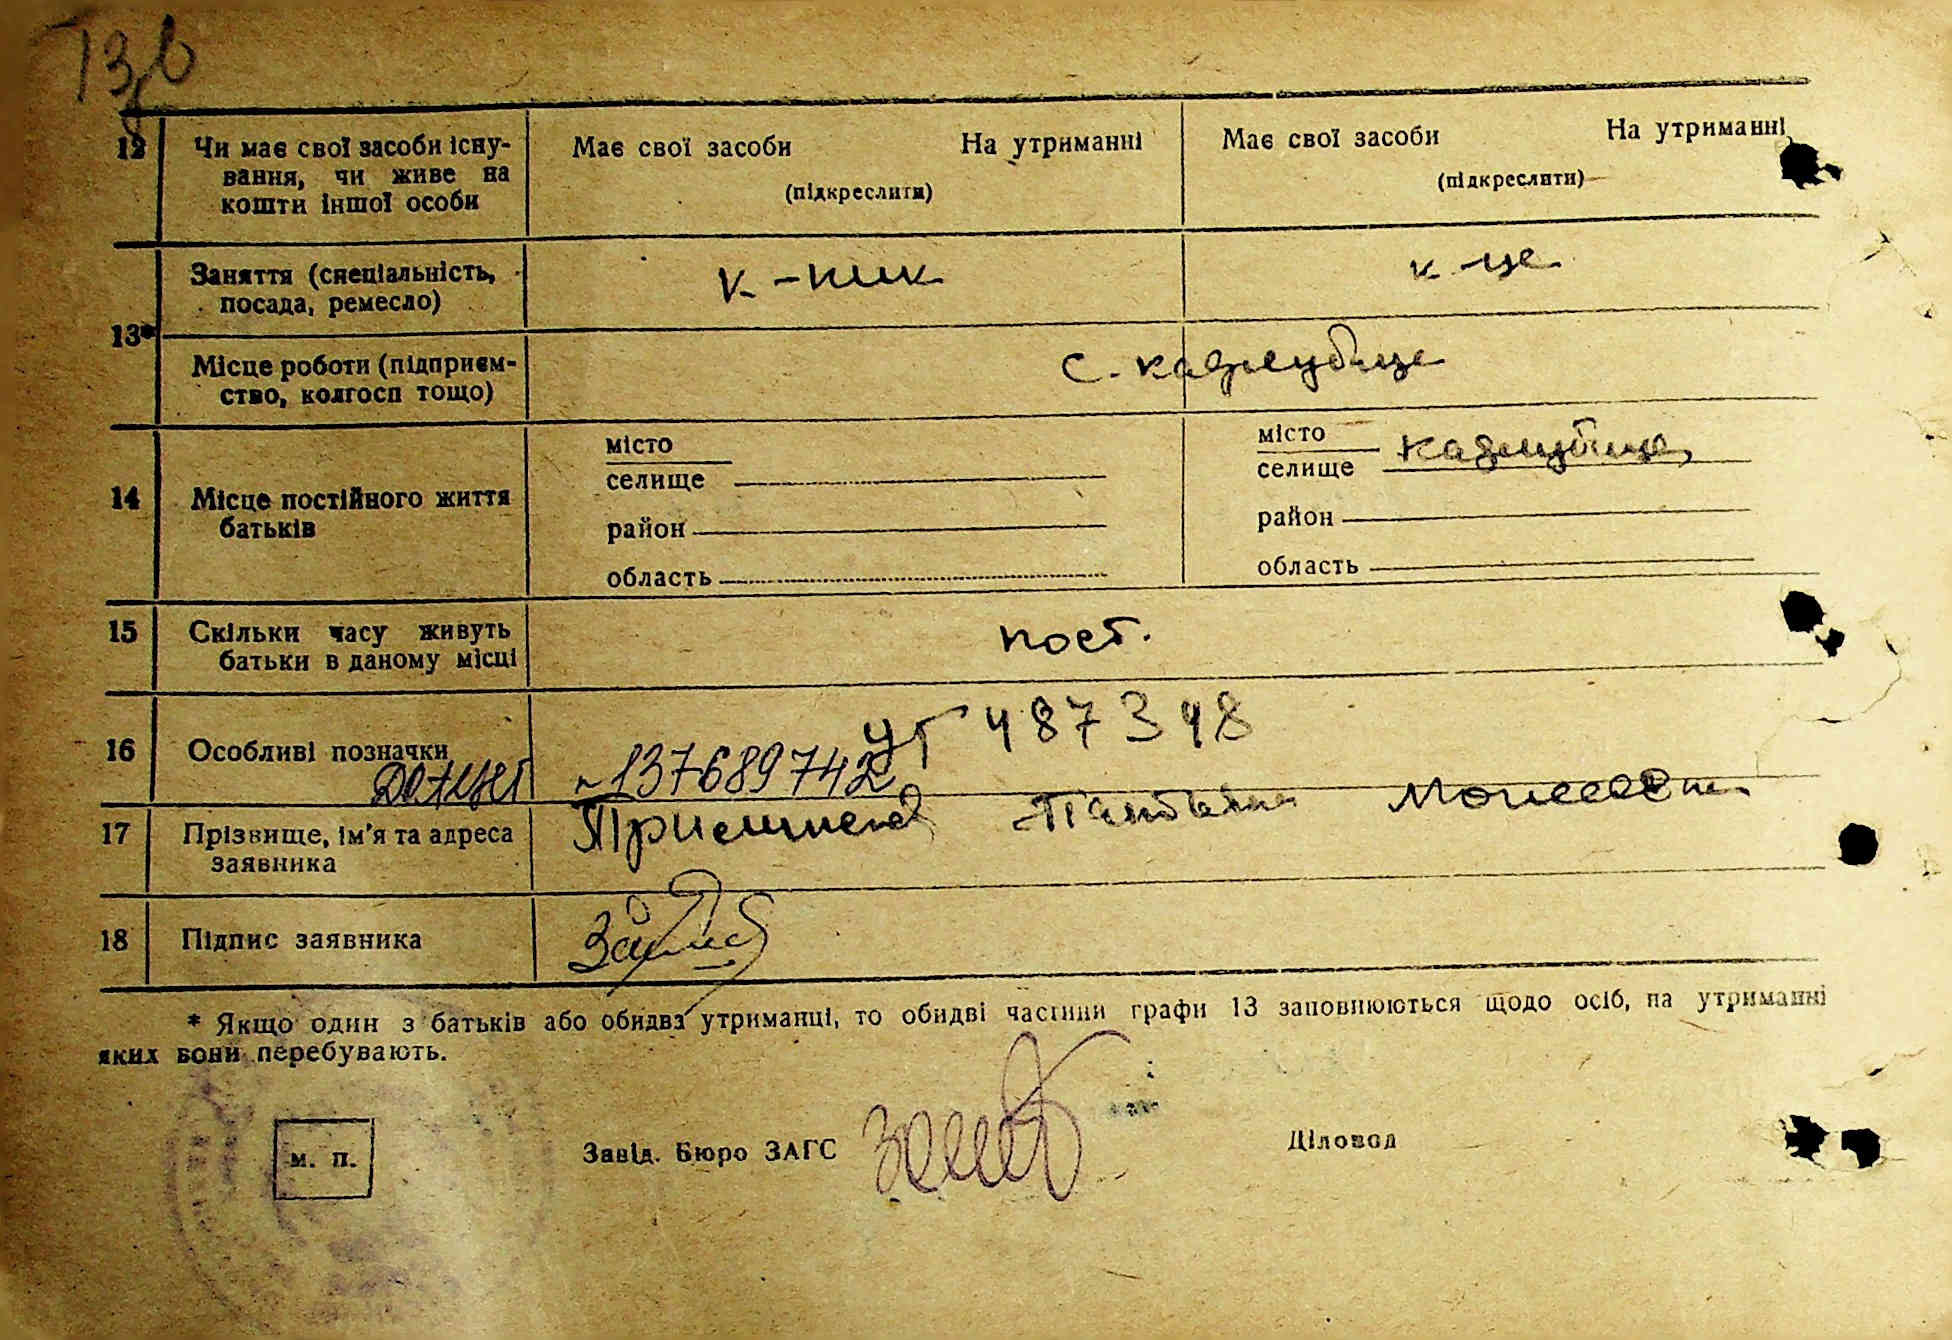 13
12 Чи має свої засоби існу- Має свої засоби На утриманні Має свої засоби На утриманні
вання, чи живе на (підкреслити) (підкреслити)
кошти іншої особи
Заняття (спеціальність, к-ник к-це
посада, ремесло)
13*
Місце роботи (підприєм- с.
ство, колгосп тощо)
місто місто
селище селище
14 Місце постійного життя район район
батьків
область область
15 Скільки часу живуть пост.
батьки в даному місці
УГ 487398
16 Особливі позначки
~137689742
17 Прізвище, ім'я та адреса
заявника
18 Підпис заявника
* Якщо один з батьків або обидва утриманці, то обидві частини графи 13 заповнюються щодо осіб, на утриманні
яких вони перебувають.
м. п. Завід. Бюро ЗАГС Діловод